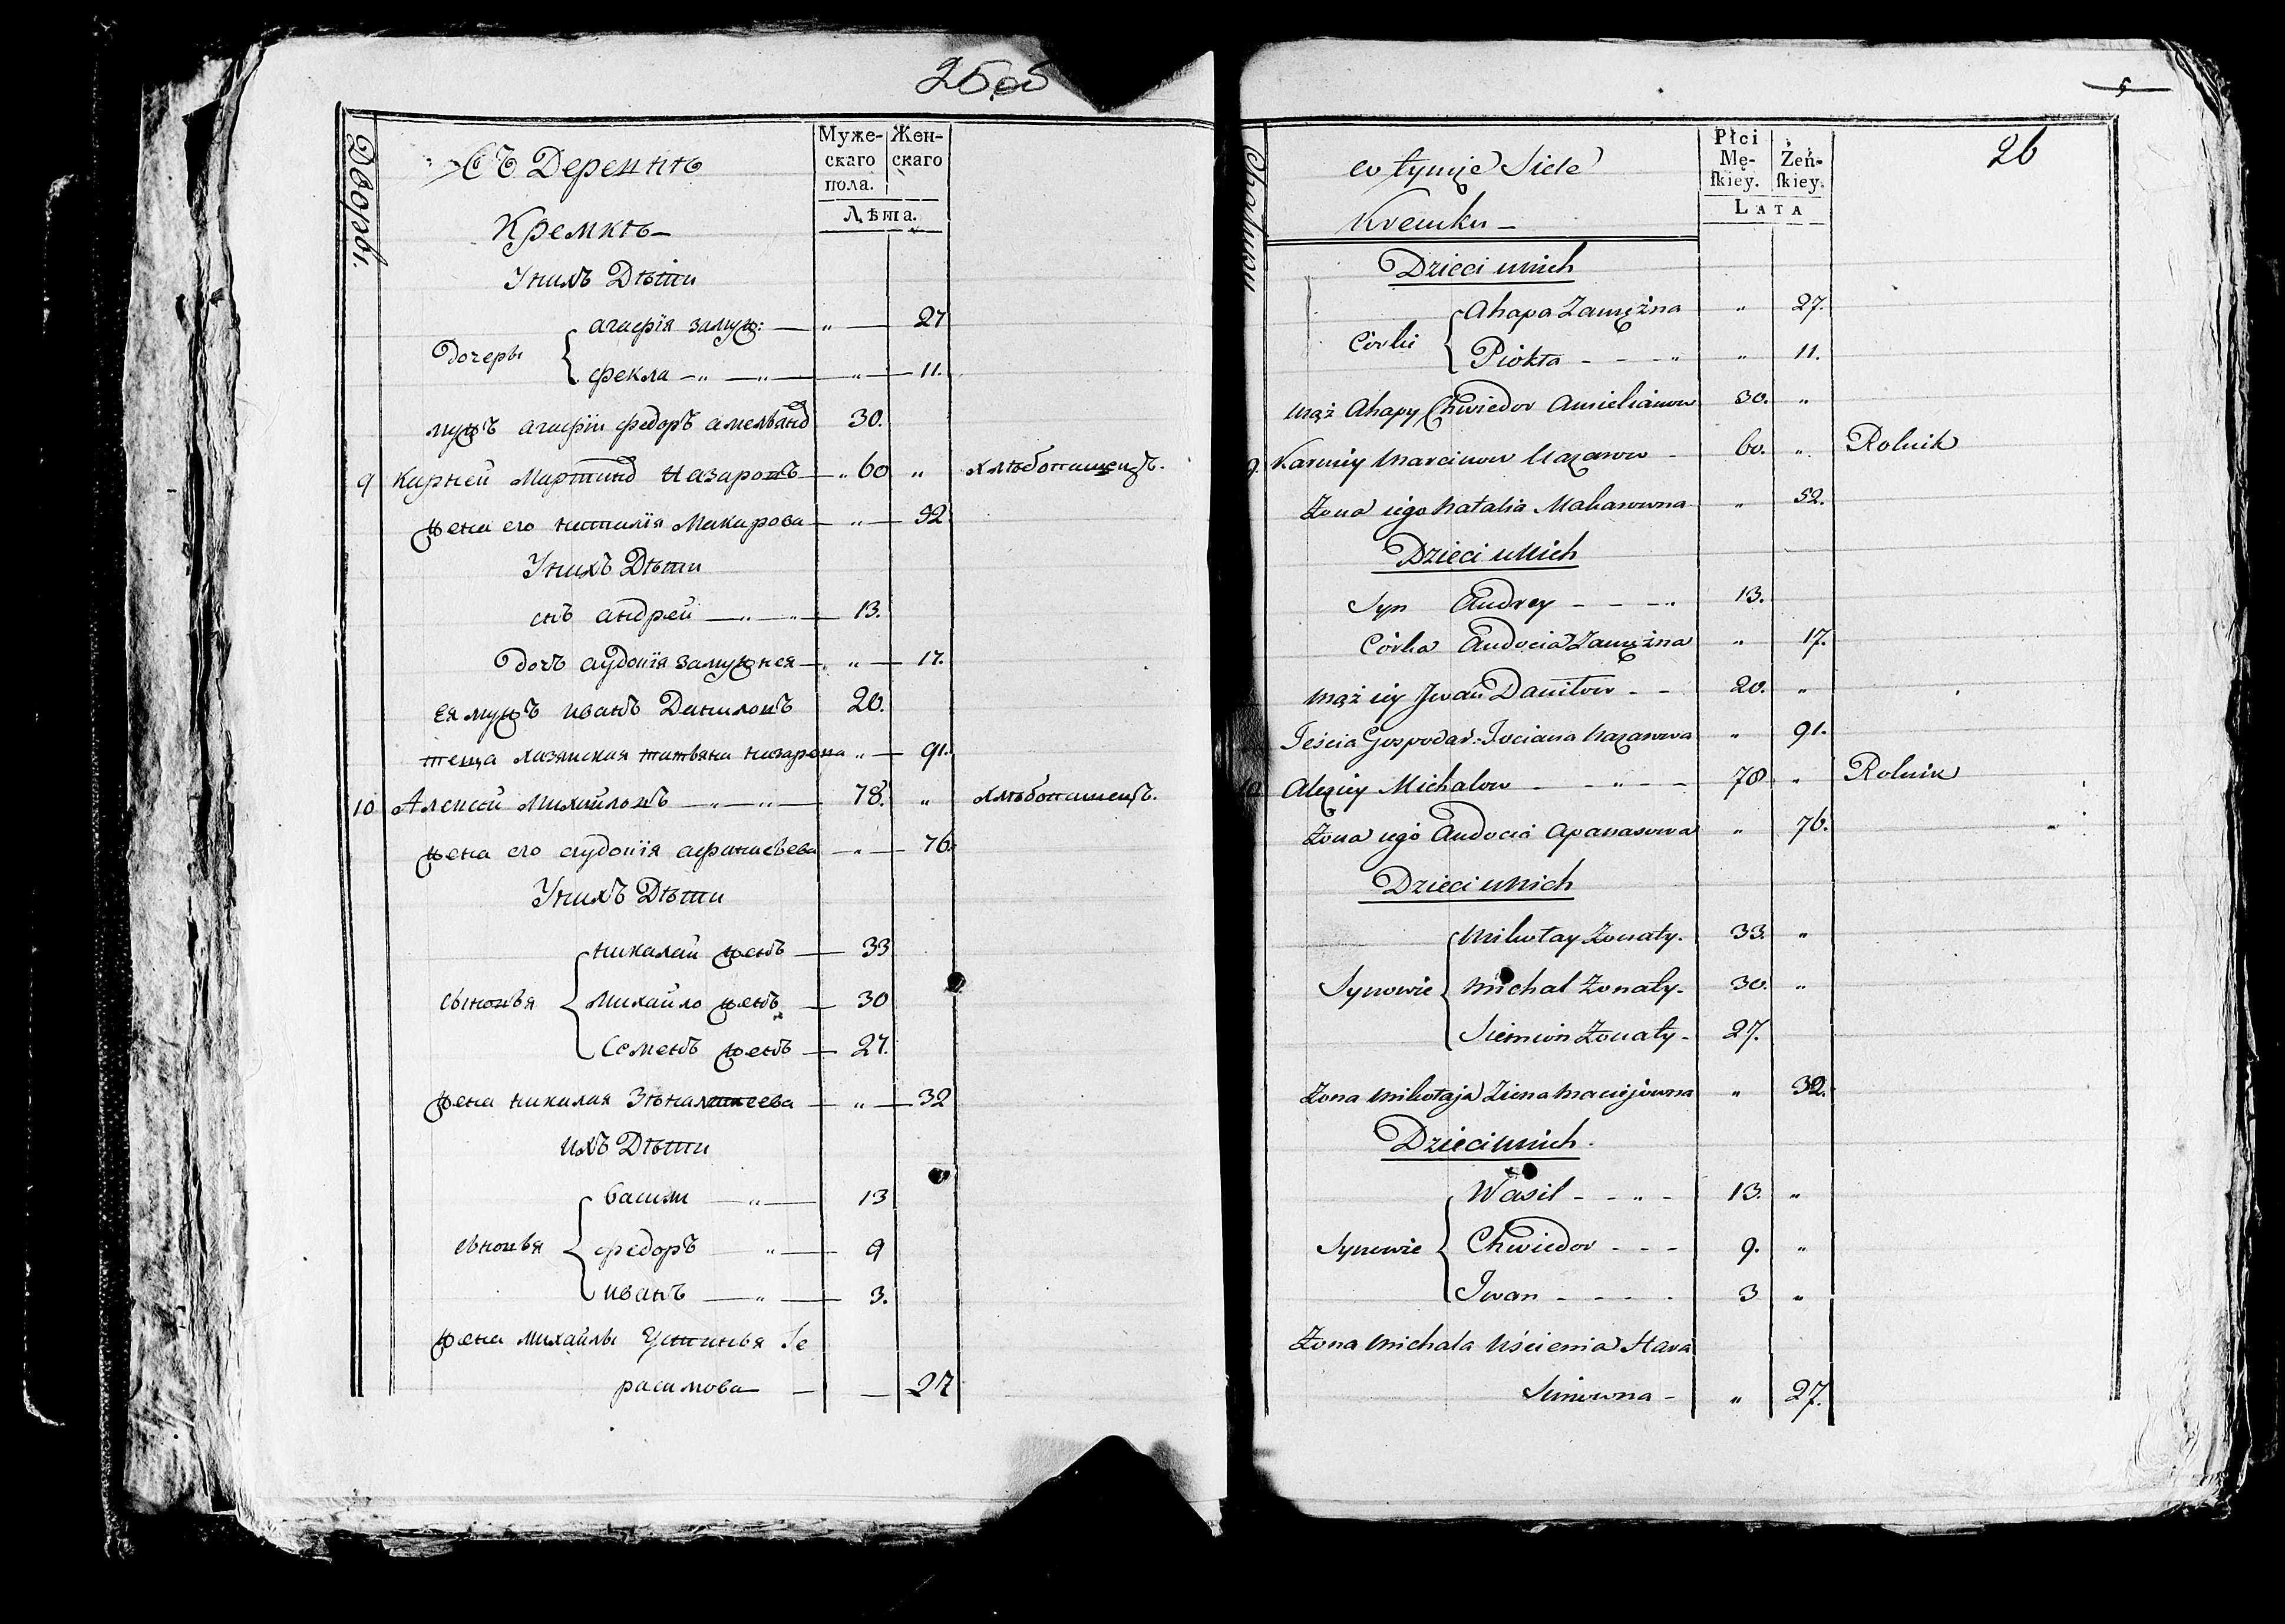 25 об
Дворы.
Въ Деревнѣ
Кремкѣ
Муже-
скаго
пола.
Жен-
скаго
Лѣта.
Унихъ Дѣти
Дочеры
агафія замуж: — „ — 27
фекла — „ — „ — „ — 11.
мужъ агафіи федоръ амельянов 30.
9 Карней Мартинов Назаровъ — „ 60 „ хлѣбопашецъ.
жена его наталія Макарова — „ — 52
Унихъ Дѣти
снъ андрей — „ — „ — 13.
дочъ аудопія замужнея — „ „ — 17.
Ея мужъ иванъ Даниловъ 20.
теща хазяиская татьяна назарова „ — 91.
10 Алексей Михайловъ — „ — „ — 78. „ хлѣбопашецъ.
жена его аудопія афанасьева — „ — 76.
Унихъ Дѣти
сыновья
николай женъ — 33
Михайло женъ — 30
Семенъ женъ — 27.
жена николая Зѣна матеева — „ — 32
ихъ Дѣти
сыновья
васили — „ — 13
федоръ „ — 9
иванъ — „ — 3.
жена михайлы Еустинья Ге
расимова — — 27
5
26
Chałupy
w tymże Siele
Kremku —
Płci
Mę-
skiey.
Żeń-
skiey.
LATA
Dzieci u nich
Córki
Ahapa Zamężna „ 27.
Piokta - - - „ „ 11.
mąż Ahapy Chwiedor Amielianow 30. „
9. Karniey Marcinow Nazarow - 60. „ Rolnik
Żona iego Natalia Makarowna „ 52.
Dzieci u Nich
Syn Andrey - - - „ 13.
Córka Audocia Zamężna „ 17.
mąż iey Jwan Daniłow - - 20. „
Teścia Gospodar: Taciana Nazarowa „ 91.
10 Alexiey Michałow - - „ - - 78 „ Rolnik
Żona iego Audocia Apanasowa „ 76.
Dzieci u Nich
Synowie
Mikołay Żonaty. 33. „
Michał Żonaty. 30. „
Siemion Żonaty - 27.
Żona Mikołaja Ziena Maciejowna „ 32.
Dzieci u nich.
Synowie
Wasil - - „ - 13. „
Chwiedor - - - 9. „
Jwan - - - - 3 „
Żona Michała Uścienia Hara
simowna - „ 27.